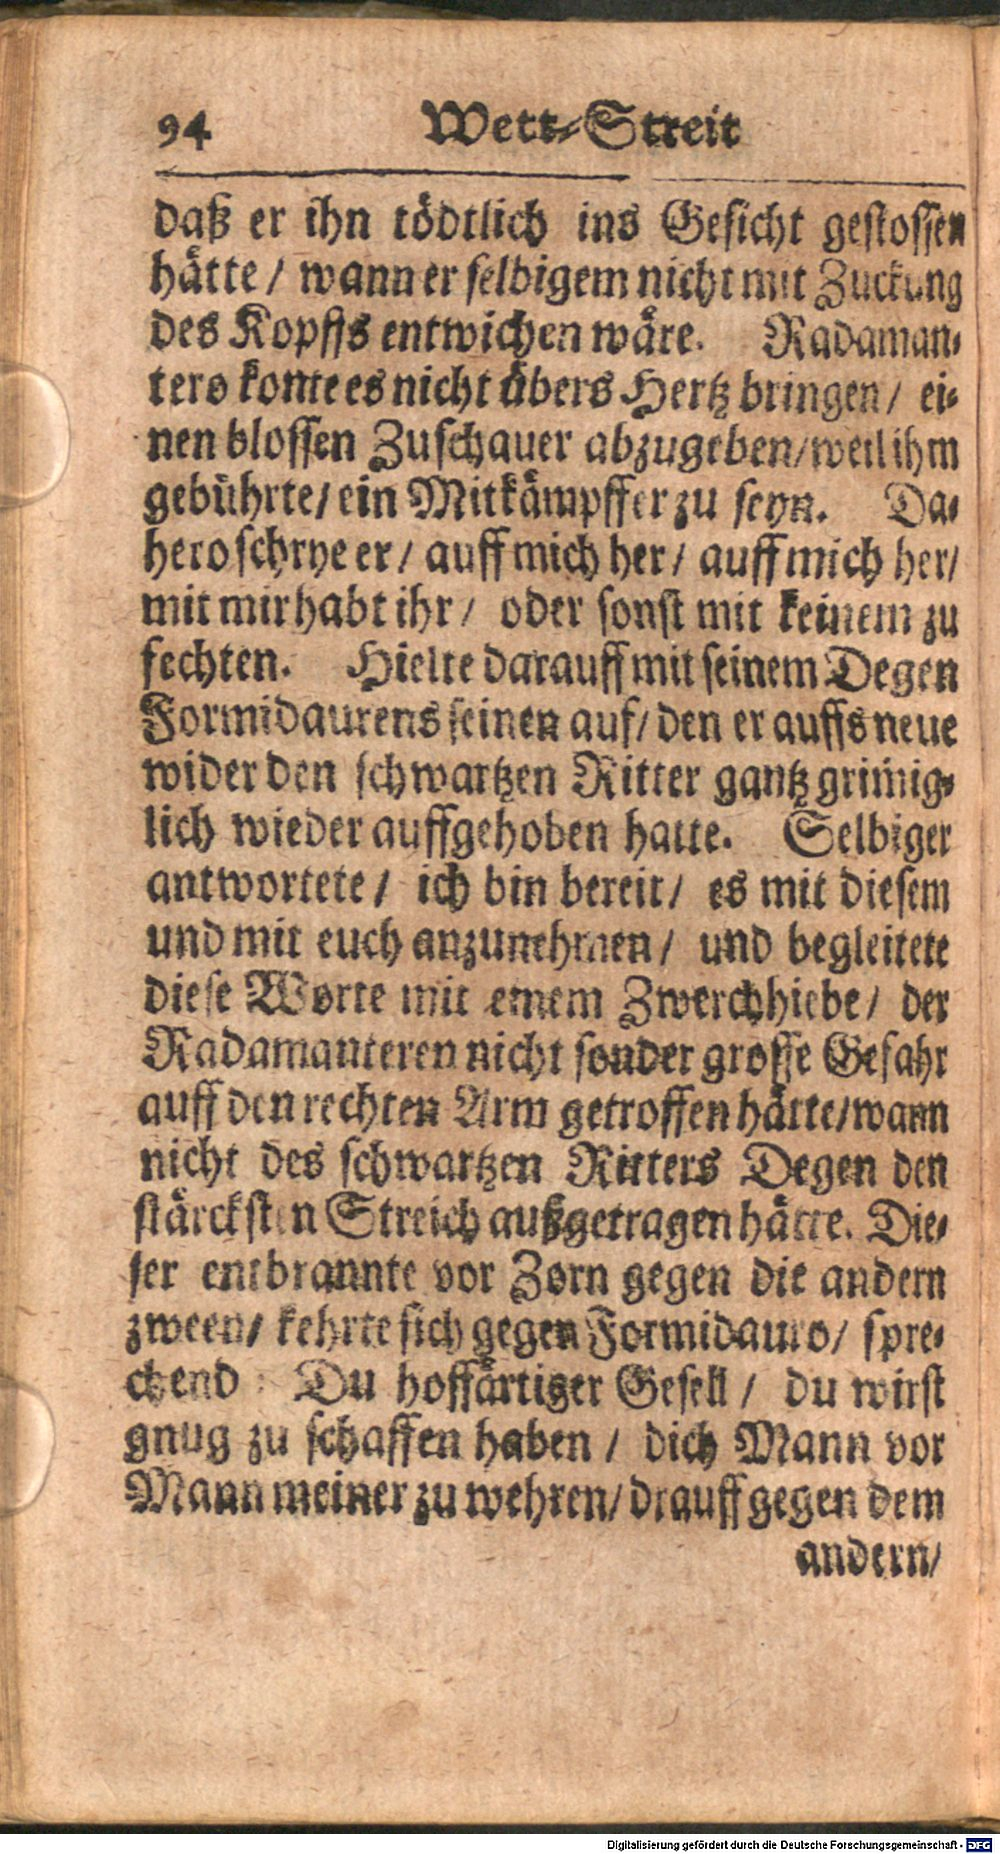 94 Wett-Streit
daß er ihn tödtlich ins Gesicht gestossen
hätte / wann er selbigem nicht mit Zuckung
des Kopffs entwichen wäre. Radaman-
tero konte es nicht übers Hertz bringen / ei-
nen blossen Zuschauer abzugeben / weil ihm
gebührte / ein Mitkämpffer zu seyn. Da-
hero schrye er / auff mich her / auff mich her /
mit mir habt ihr / oder sonst mit keinem zu
fechten. Hielte darauff mit seinem Degen
Formidaurens seinen auf / den er auffs neue
wider den schwartzen Ritter gantz grim̃ig-
lich wieder auffgehoben hatte. Selbiger
antwortete / ich bin bereit / es mit diesem
und mit euch anzunehmen / und begleitete
diese Worte mit einem Zwerchhiebe / der
Radamanteren nicht sonder grosse Gefahr
auff den rechten Arm getroffen hätte / wann
nicht des schwartzen Ritters Degen den
stärcksten Streich außgetragen hätte. Die-
ser entbrannte vor Zorn gegen die andern
zween / kehrte sich gegen Formidauro / spre-
chend : Du hoffärtiger Gesell / du wirst
gnug zu schaffen haben / dich Mann vor
Mann meiner zu wehren / drauff gegen dem
andern /
Digitalisierung gefördert durch die Deutsche Forschungsgemeinschaft - DFG